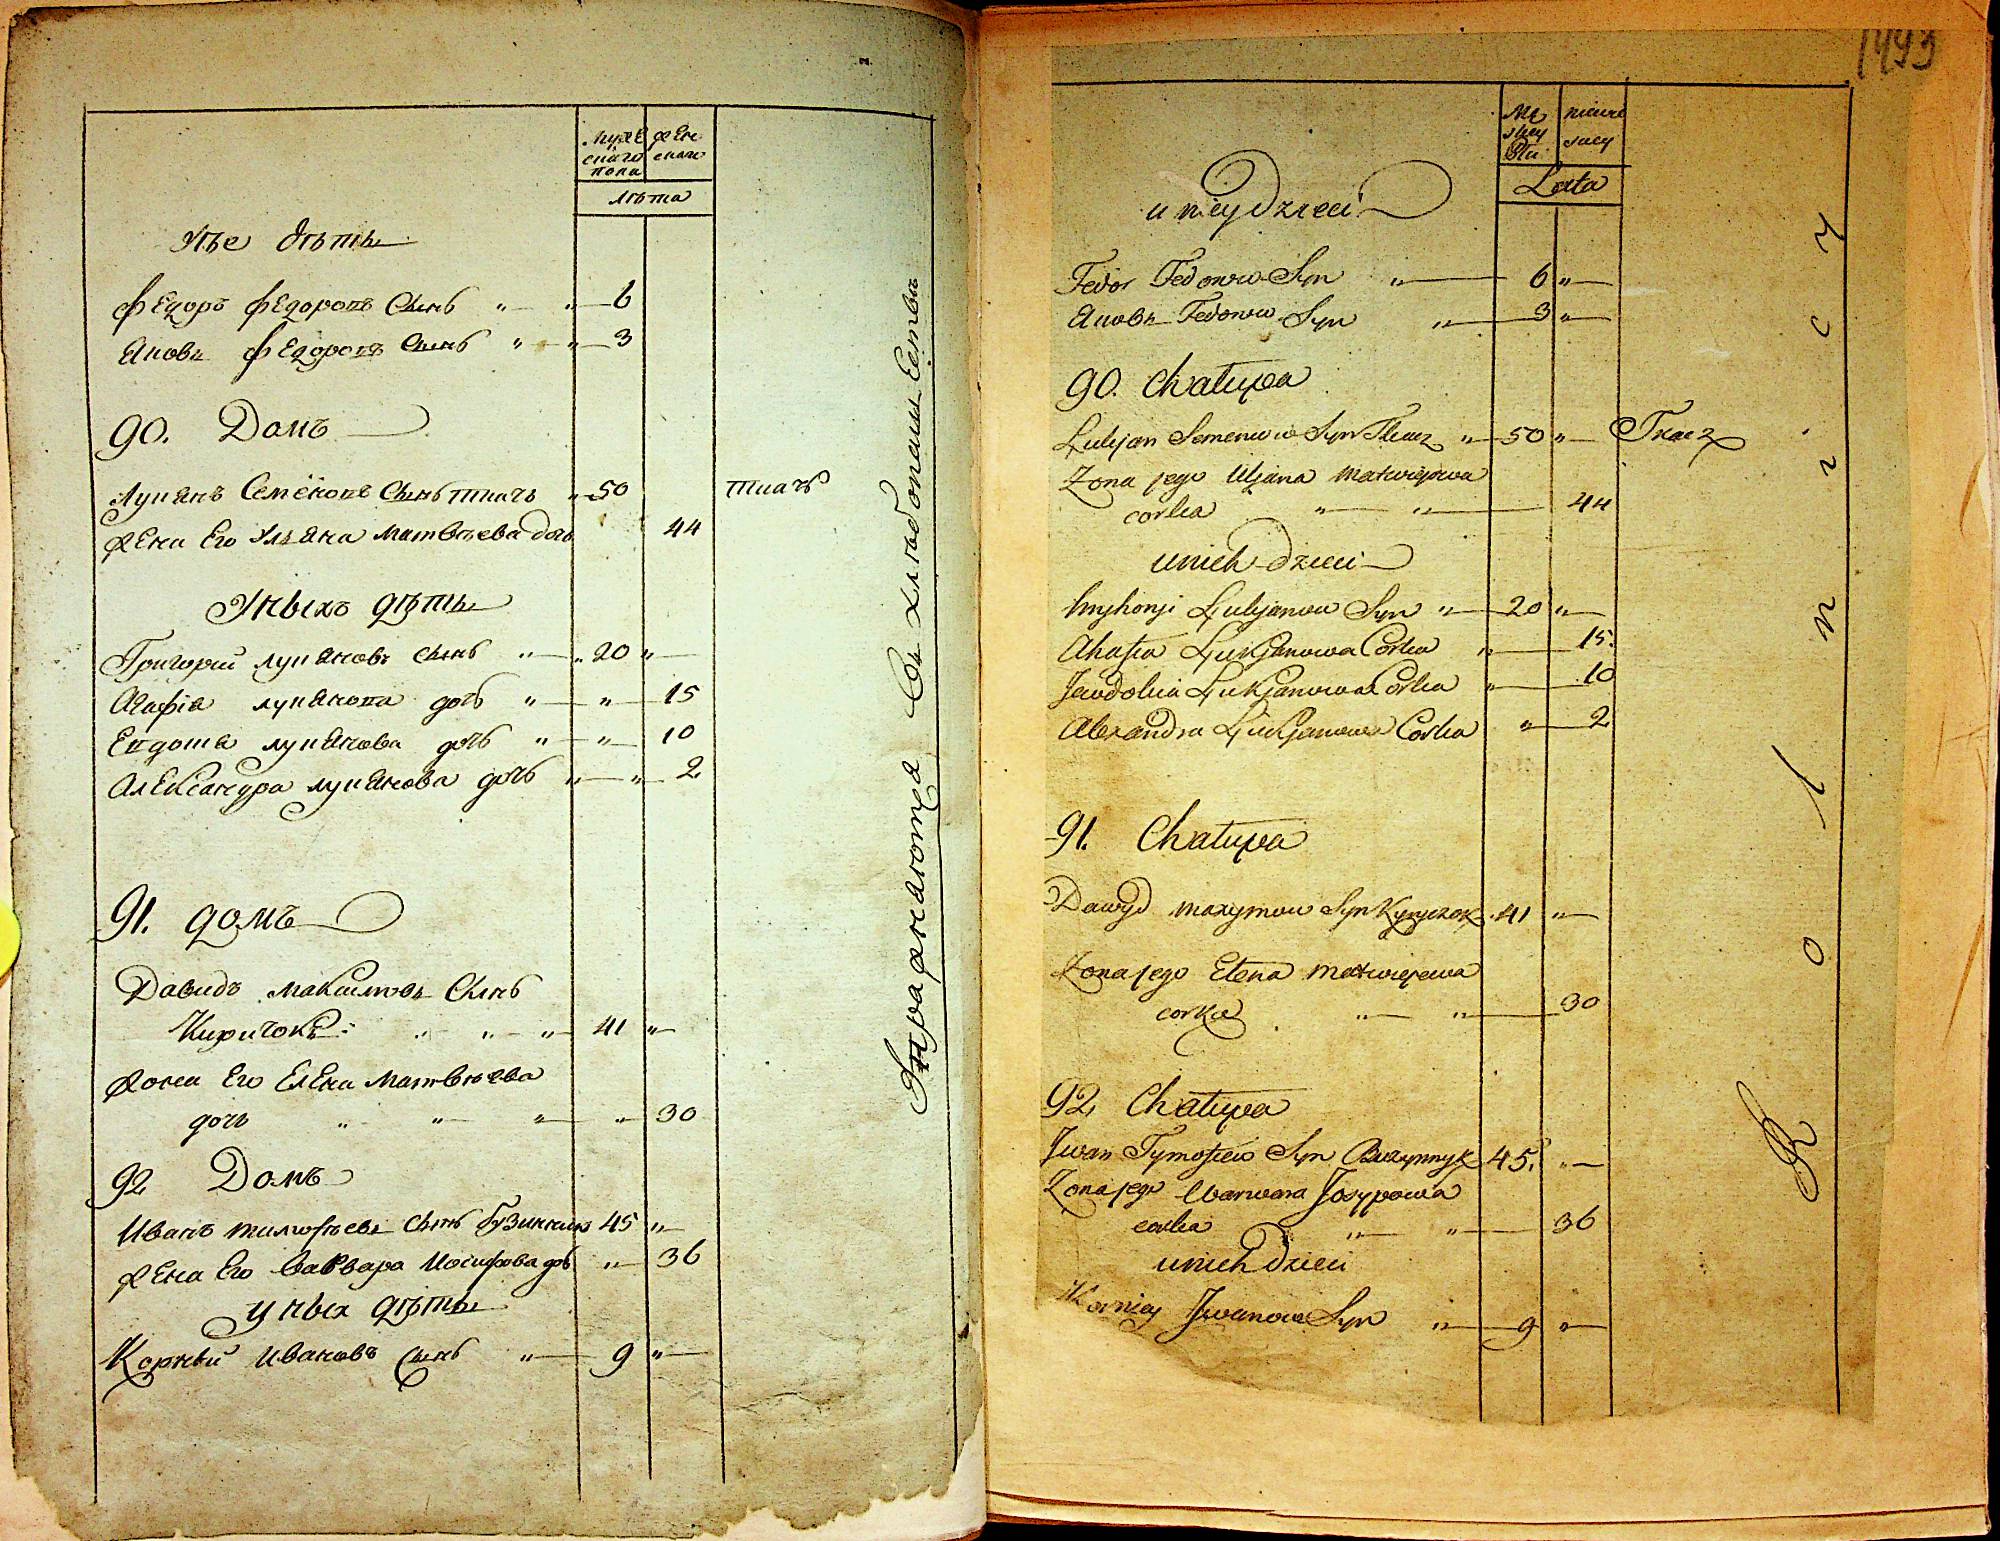 муже
скаго
пола
жен
скаго
лѣта
У нее дѣти
Федоръ Федоровъ сынъ " " 6
Яковъ Федоровъ сынъ " " 3
90. Домъ
Лукянъ Семёновъ сынъ ткачъ " 50 ткачъ
Жена Его Ульяна Матвѣева дочь 44
У ныхъ дѣти
Григорий Лукяновъ сынъ " " 20 "
Агафія Лукянова дочь " " 15
Евдокия Лукянова дочь " " 10
Александра Лукянова дочь " " 2
91. домъ
Давидъ Максимовъ сынъ
Киричокъ " " " 41 "
Жона Его Елена Матвѣева
дочь " " " " 30
92 Домъ
Иванъ Тимофѣевъ сынъ Бузинникъ 45 "
Жена Его Варвара Иосифова дочь " 36
У ныхъ дѣти
Корнѣй Ивановъ сынъ " 9 "
Упражняютца Въ хлѣбопашествѣ
1493
Mę
skey
Płci
niewie
scey
Lata
u niey Dzieci
Fedor Fedorow Syn " 6 "
Яковъ Fedorow Syn " 3 "
90. Chałupa
Lukjan Semenow Syn Tkacz " 50 " Tkacz
Zona jego Uljana Matwiejowa
corka " " 44
u nich dzieci
Hryhorji Lukjanow Syn " 20 "
Ahafia Lukjanowa Corka " 15.
Jewdokia Lukjanowa Corka " 10
Alexandra Lukjanowa Corka " 2
91. Chałupa
Dawyd Maxymow Syn Kyryczok 41 "
Zona jego Elena Matwiejewa
corka " " 30
92, Chałupa
Jwan Tymofiew Syn Buzynnyk 45. "
Zona jego Warwara Josypowa
corka " " 36
u nich Dzieci
Korniey Jwanow Syn " 9 "
Rolnicy